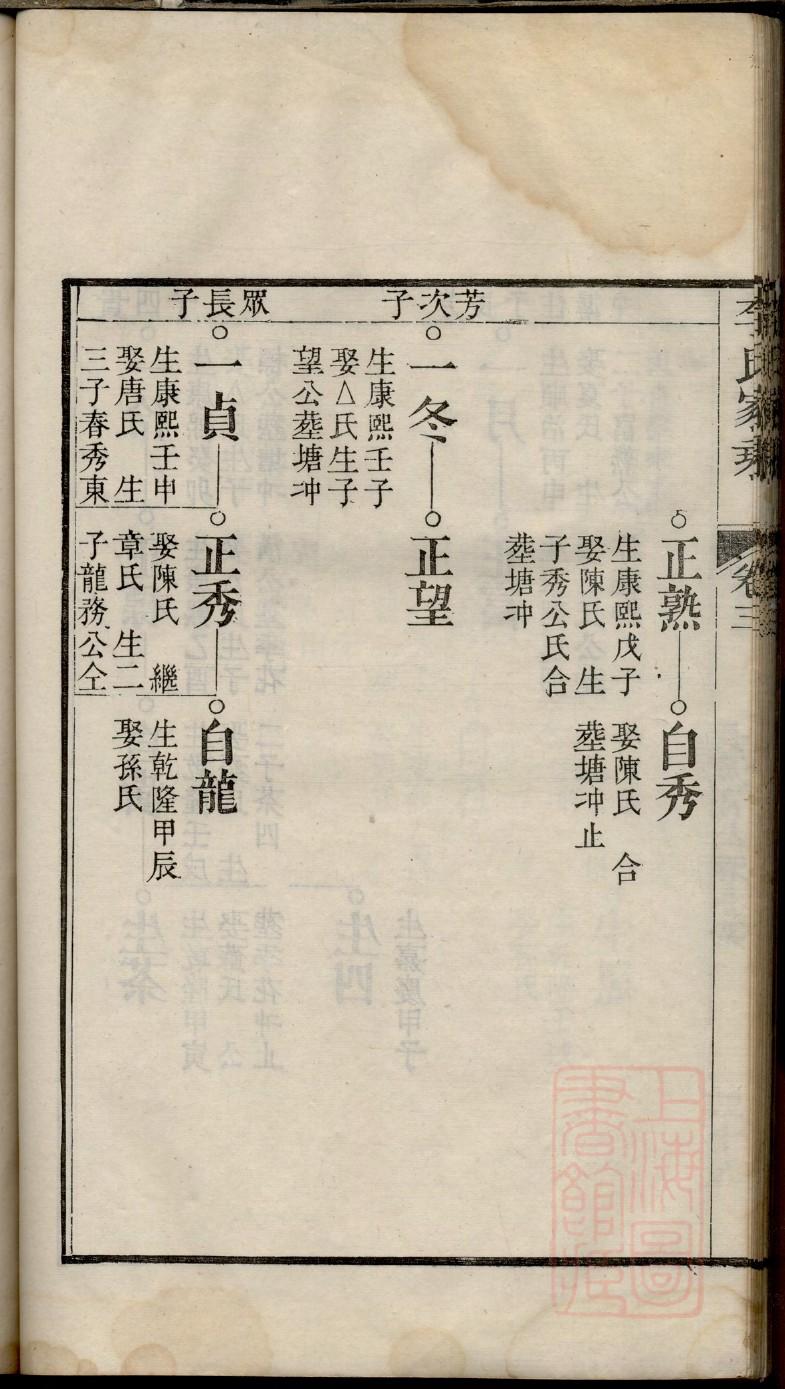 李氏家乘
卷三
正熟
生康熙戊子
娶陳氏 生
子秀公氏合
塟塘冲
自秀
娶陳氏 合
塟塘冲止
芳次子
一冬
生康熙壬子
娶△氏生子
望公塟塘冲
正望
眾長子
一貞
生康熙壬申
娶唐氏 生
三子春秀東
正秀
娶陳氏 繼
章氏 生二
子龍務公仝
自龍
生乾隆甲辰
娶孫氏
上海圖
書館藏